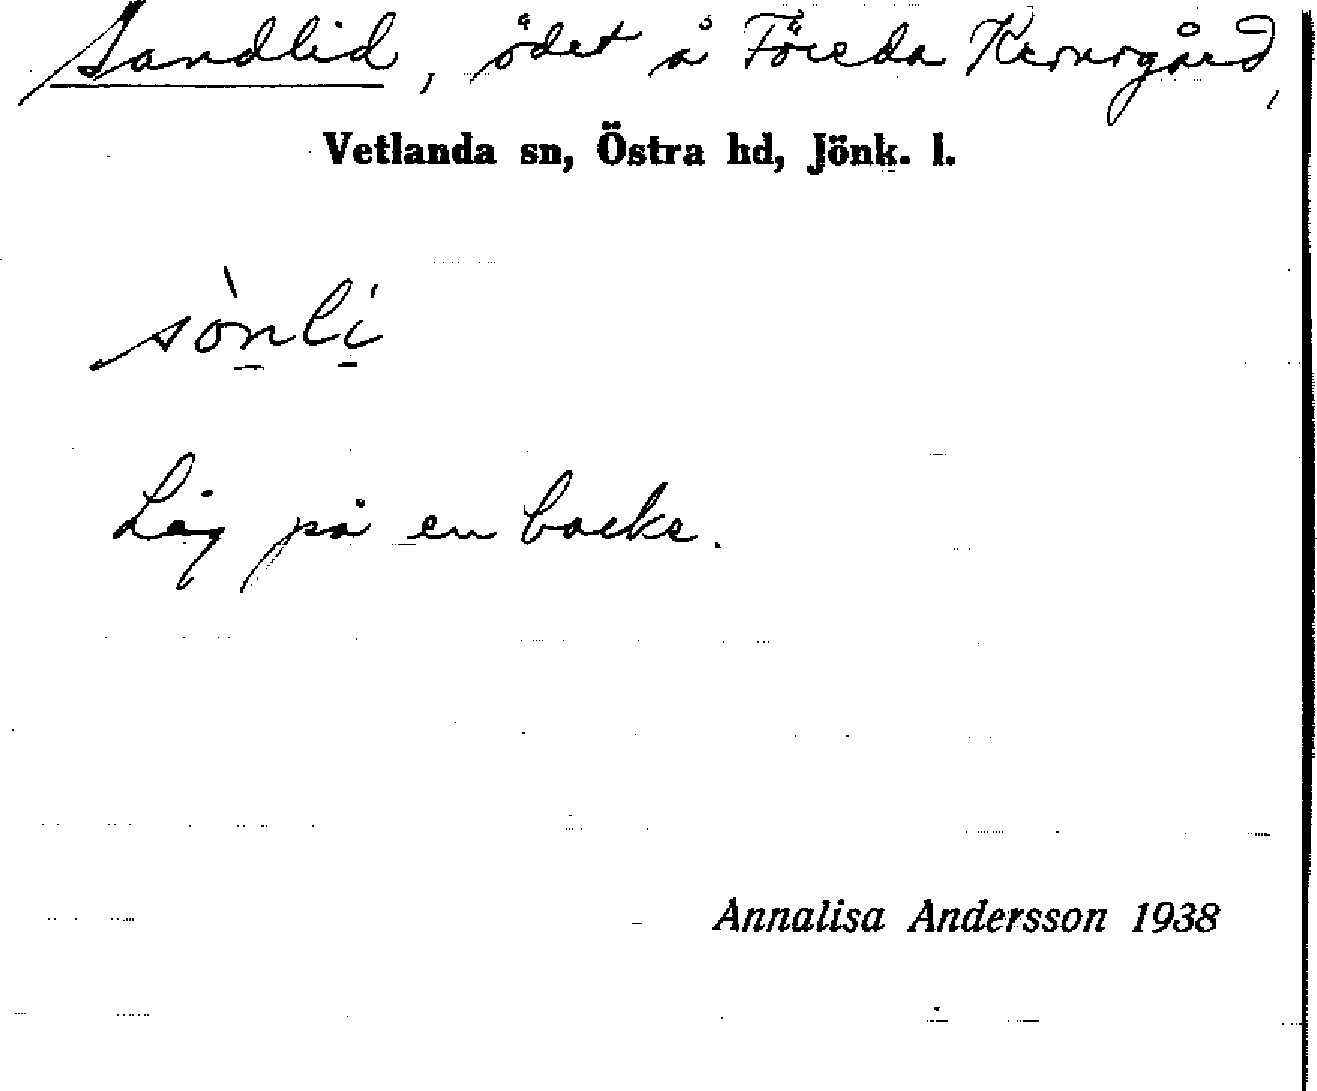 Sandlid, ödet å Föreda Kvarngård,
Vetlanda sn, Östra hd, Jönk. l.
sònli
Låg på en backe.
Annalisa Andersson 1938